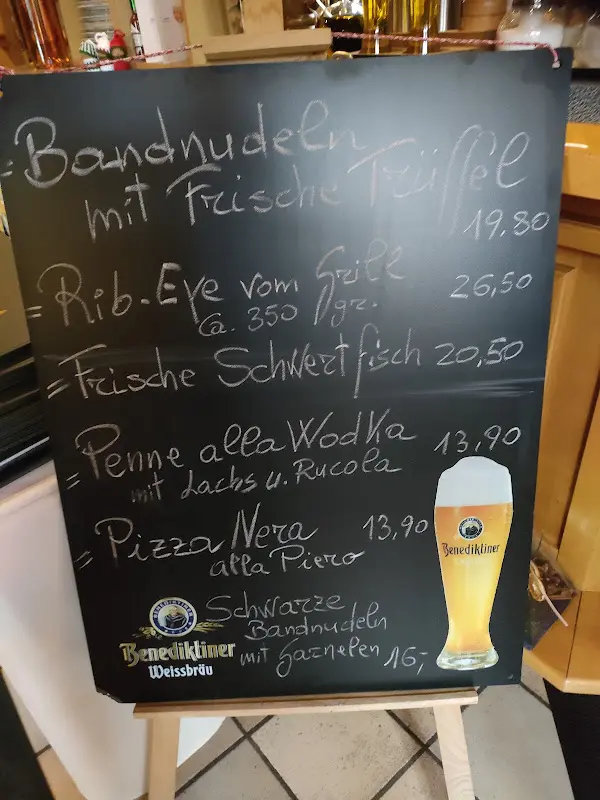 = Bandnudeln
mit Frische Trüffel
19,80
= Rib-Eye vom Grill 26,50
Ca. 350 gr.
= Frische Schwertfisch 20,50
= Penne alla Wodka 13,90
mit Lachs u. Rucola
= Pizza Nera 13,90
alla Piero
Schwarze
Bandnudeln
mit Garnelen 16,-
Benediktiner
Weissbräu
Benediktiner